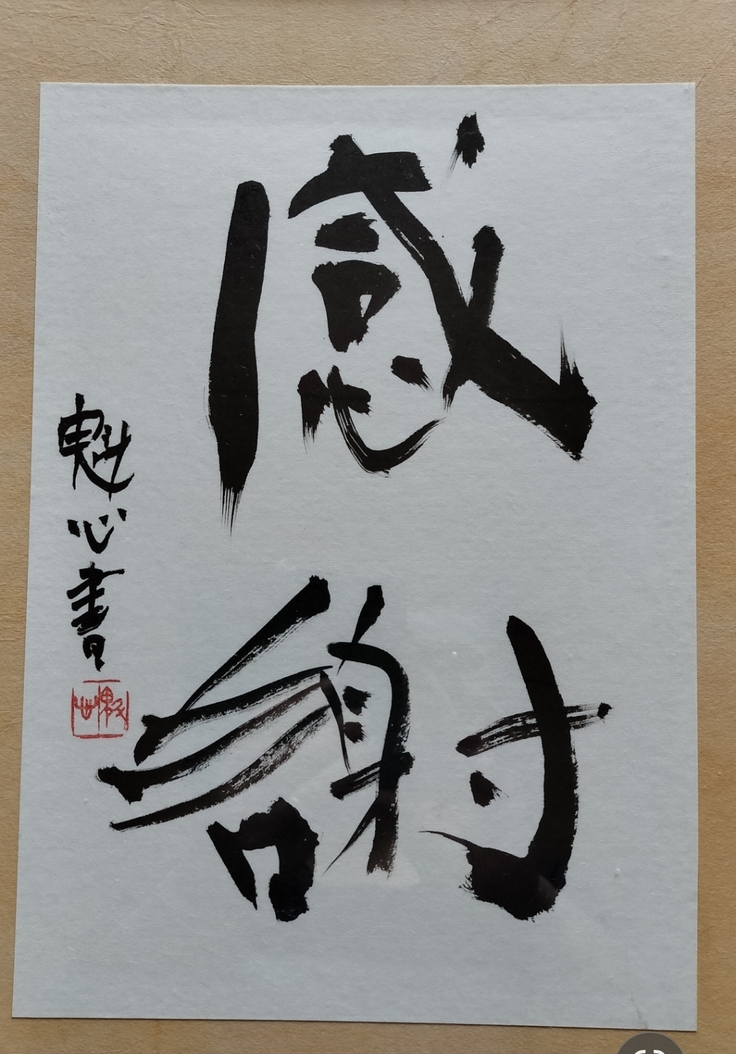 感謝
魁心書